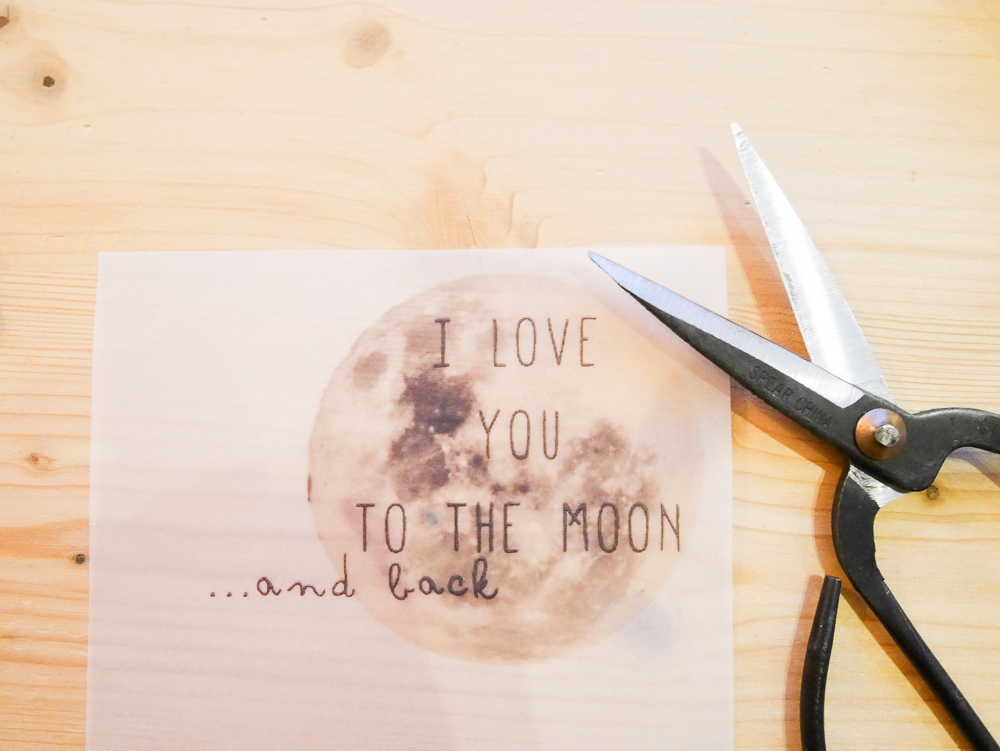 I LOVE
YOU
TO THE MOON
...and back
SPEAR CHINA